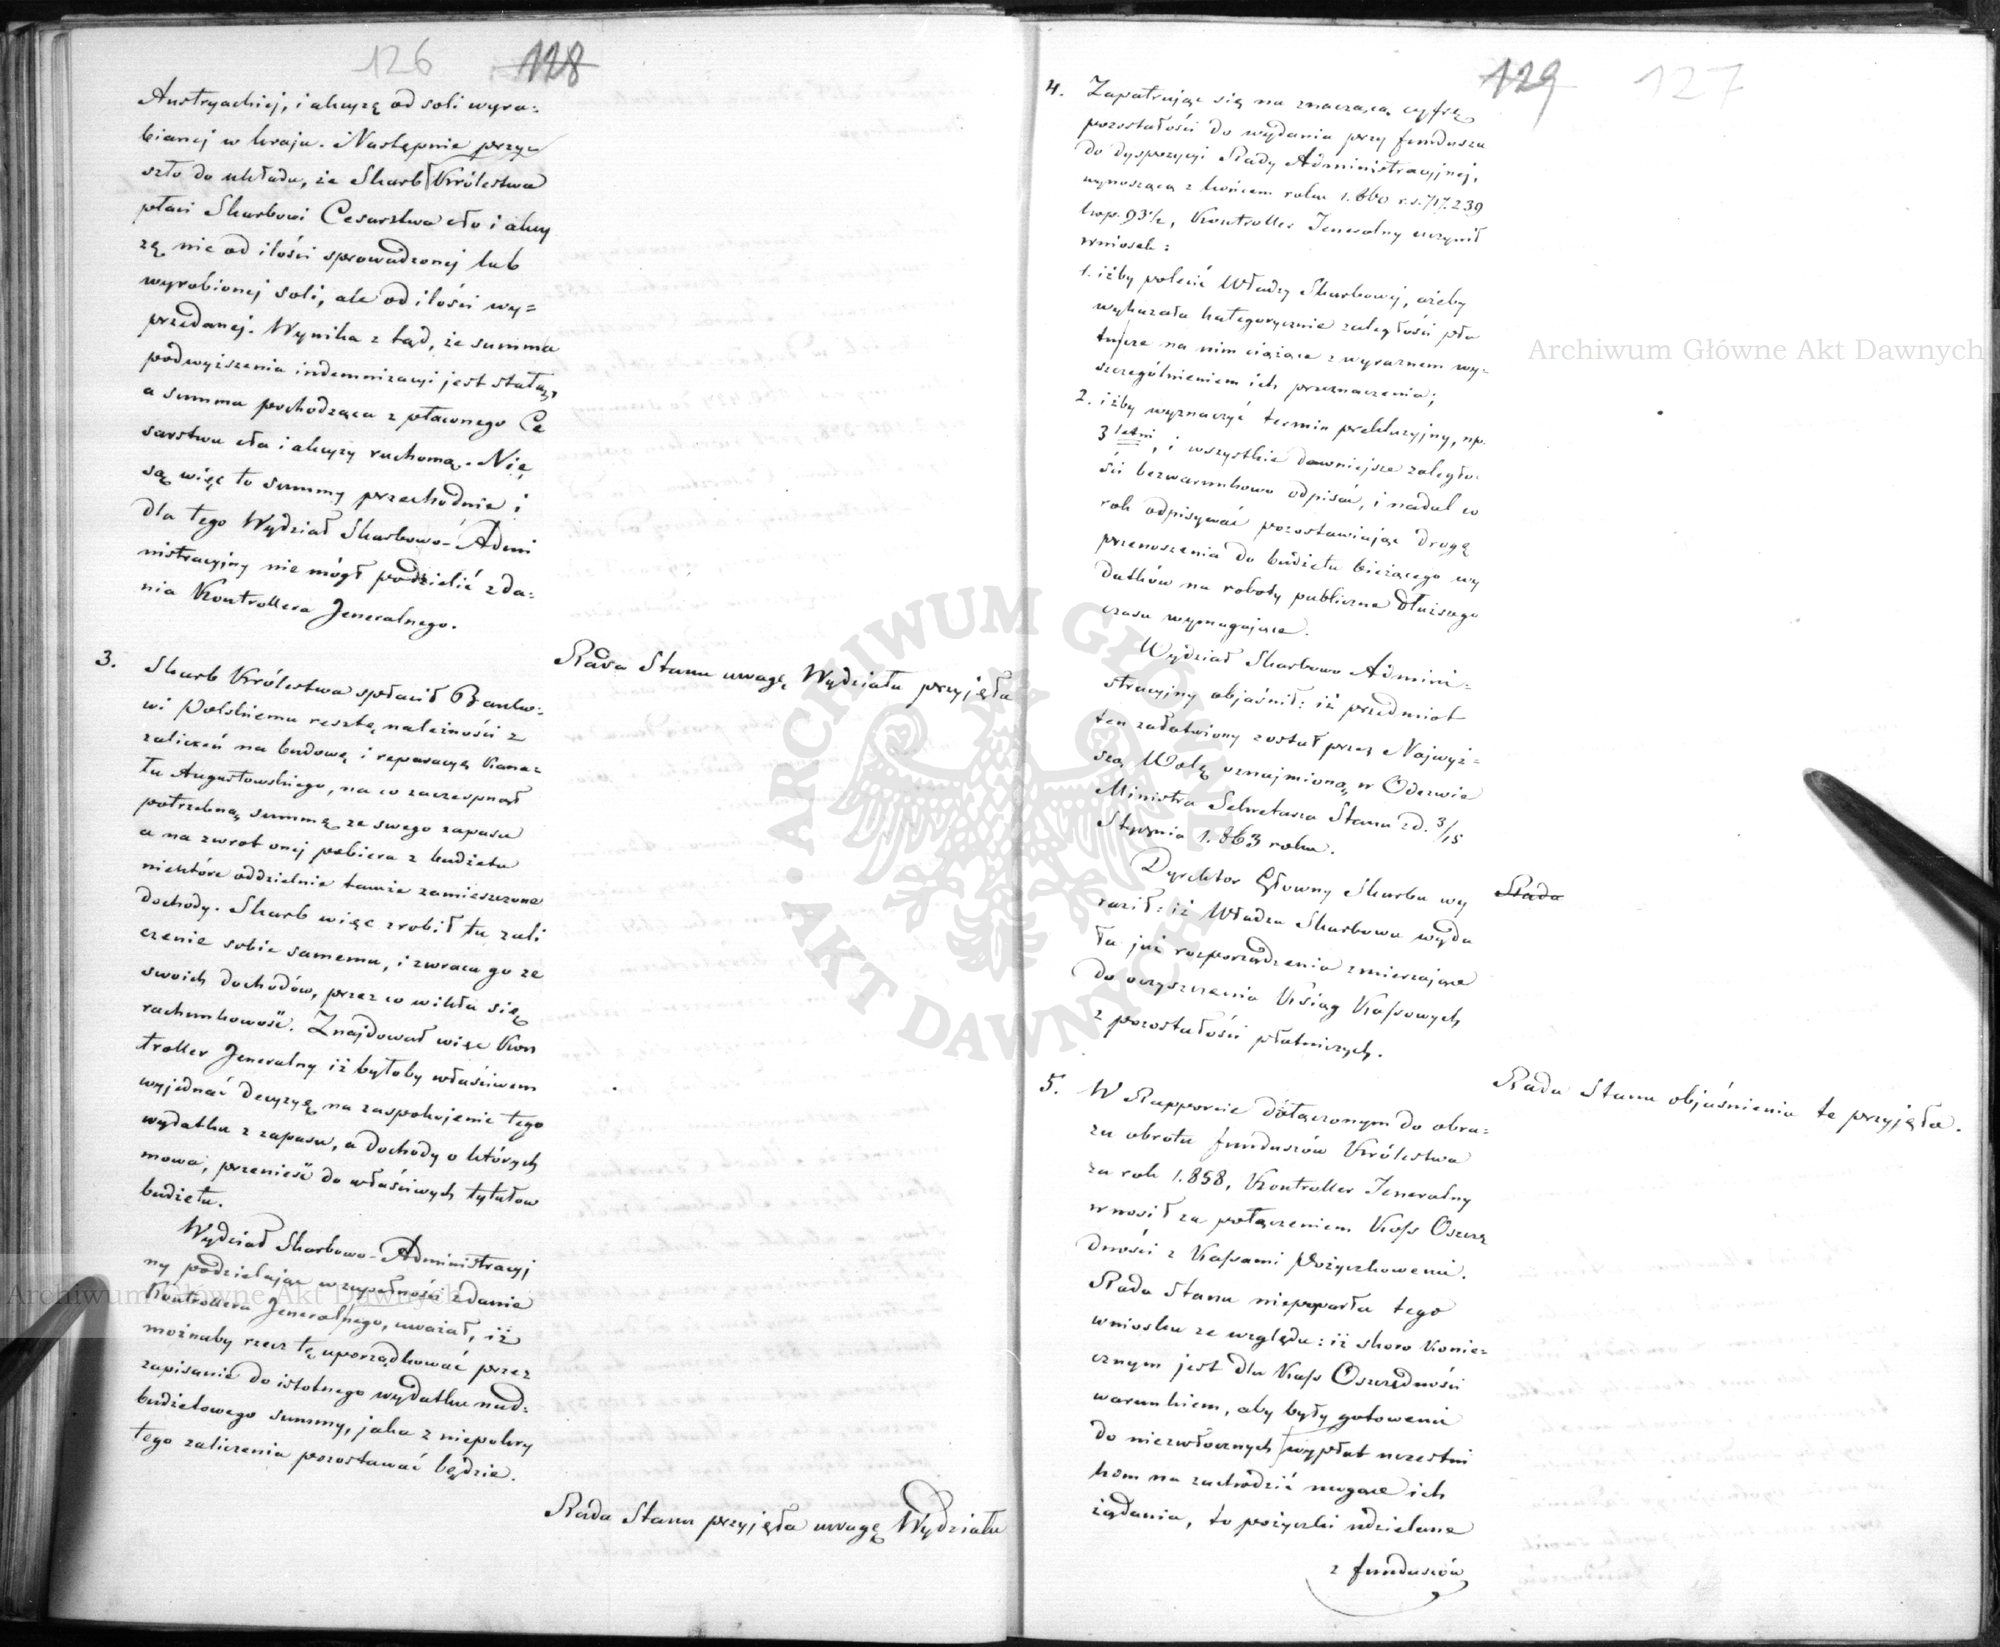 126 128
Austryackiej, i akcyzę od soli wyra-
bianej w kraju. Następnie przy-
szło do układu, że Skarb Królestwa
płaci Skarbowi Cesarstwa cło i akcy
zę nie od ilości sprowadzonej lub
wyrobionej soli, ale od ilości wy-
przedanej. Wynika z tąd, że summa
podwyższenia indemnizacyi jest stałą,
a summa pochodząca z płaconego Ce
sarstwu cła i akcyzy ruchomą. Nie
są więc to summy przechodnie i
dla tego Wydział Skarbowo-Admi
nistracyjny nie mógł podzielić zda-
nia Kontrollera Jeneralnego.
Rada Stanu uwagę Wydziału przyjęła
3. Skarb Królestwa spłacił Banko-
wi Polskiemu resztę należności z
zaliczeń na budowę i reparacyę Kana-
łu Augustowskiego, na co zaczerpnął
potrzebną summę ze swego zapasu
a na zwrot onej pobiera z budżetu
niektóre oddzielnie tamże zamieszczone
dochody. Skarb więc zrobił tu zali
czenie sobie samemu, i zwraca go ze
swoich dochodów, przez co wikła się
rachunkowość. Znajdował więc Kon
troller Jeneralny iż byłoby właściwem
wyjednać decyzyę na zaspokojenie tego
wydatku z zapasu, a dochody o których
mowa, przenieść do właściwych tytułow
budżetu.
Wydział Skarbowo-Administracyj
ny podzielając w zupełności zdanie
Kontrollera Jeneralnego, uważał, iż
możnaby rzecz tę uporządkować przez
zapisanie do istotnego wydatku nad-
budżetowego summy, jaka z niepokry
tego zaliczenia pozostawać będzie.
Rada Stanu przyjęła uwagę Wydziału
129 127
4. Zapatrując się na znaczącą cyfrę
pozostałości do wydania przy funduszu
do dyspozycyi Rady Administracyjnej,
wynoszącą z końcem roku 1.860 r.s. 717.239
kop. 93½, Kontroller Jeneralny uczynił
wniosek:
1. iżby polecić Władzy Skarbowej, ażeby
wykazała kategorycznie zaległości pła
tnicze na nim ciążące z wyraznem wy-
szczególnieniem ich przeznaczenia;
2. iżby wyznaczyć termin prekluzyjny, np.
3 letni, i wszystkie dawniejsze zaległo-
ści bezwarunkowo odpisać, i nadal co
rok odpisywać pozostawiając drogę
przenoszenia do budżetu bieżącego wy
datków na roboty publiczne dłuższego
czasu wymagające.
Wydział Skarbowo Admini-
stracyjny objaśnił: iż przedmiot
ten załatwiony został przez Najwyż-
szą Wolę oznajmioną w Odezwie
Ministra Sekretarza Stanu z d. 3/15
Stycznia 1.863 roku.
Dyrektor Główny Skarbu wy
raził: iż Władza Skarbowa wyda
ła już rozporządzenia zmierzające
do oczyszczenia Ksiąg Kassowych
z pozostałości płatniczych.
Rada
Rada Stanu objaśnienia te przyjęła.
5. W Rapporcie dołączonym do obra-
zu obrotu funduszów Królestwa
za rok 1.858, Kontroller Jeneralny
wnosił za połączeniem Kass Oszczę
dności z Kassami Pożyczkowemi.
Rada Stanu niepoparła tego
wniosku ze względu: iż skoro konie-
cznym jest dla Kass Oszczędności
warunkiem, aby były gotowemi
do niezwłocznych wypłat uczestni
kom na zachodzić mogące ich
żądania, to pożyczki udzielane
z funduszów
Archiwum Główne Akt Dawnych
Archiwum Główne Akt Dawnych
ARCHIWUM GŁÓWNE AKT DAWNYCH